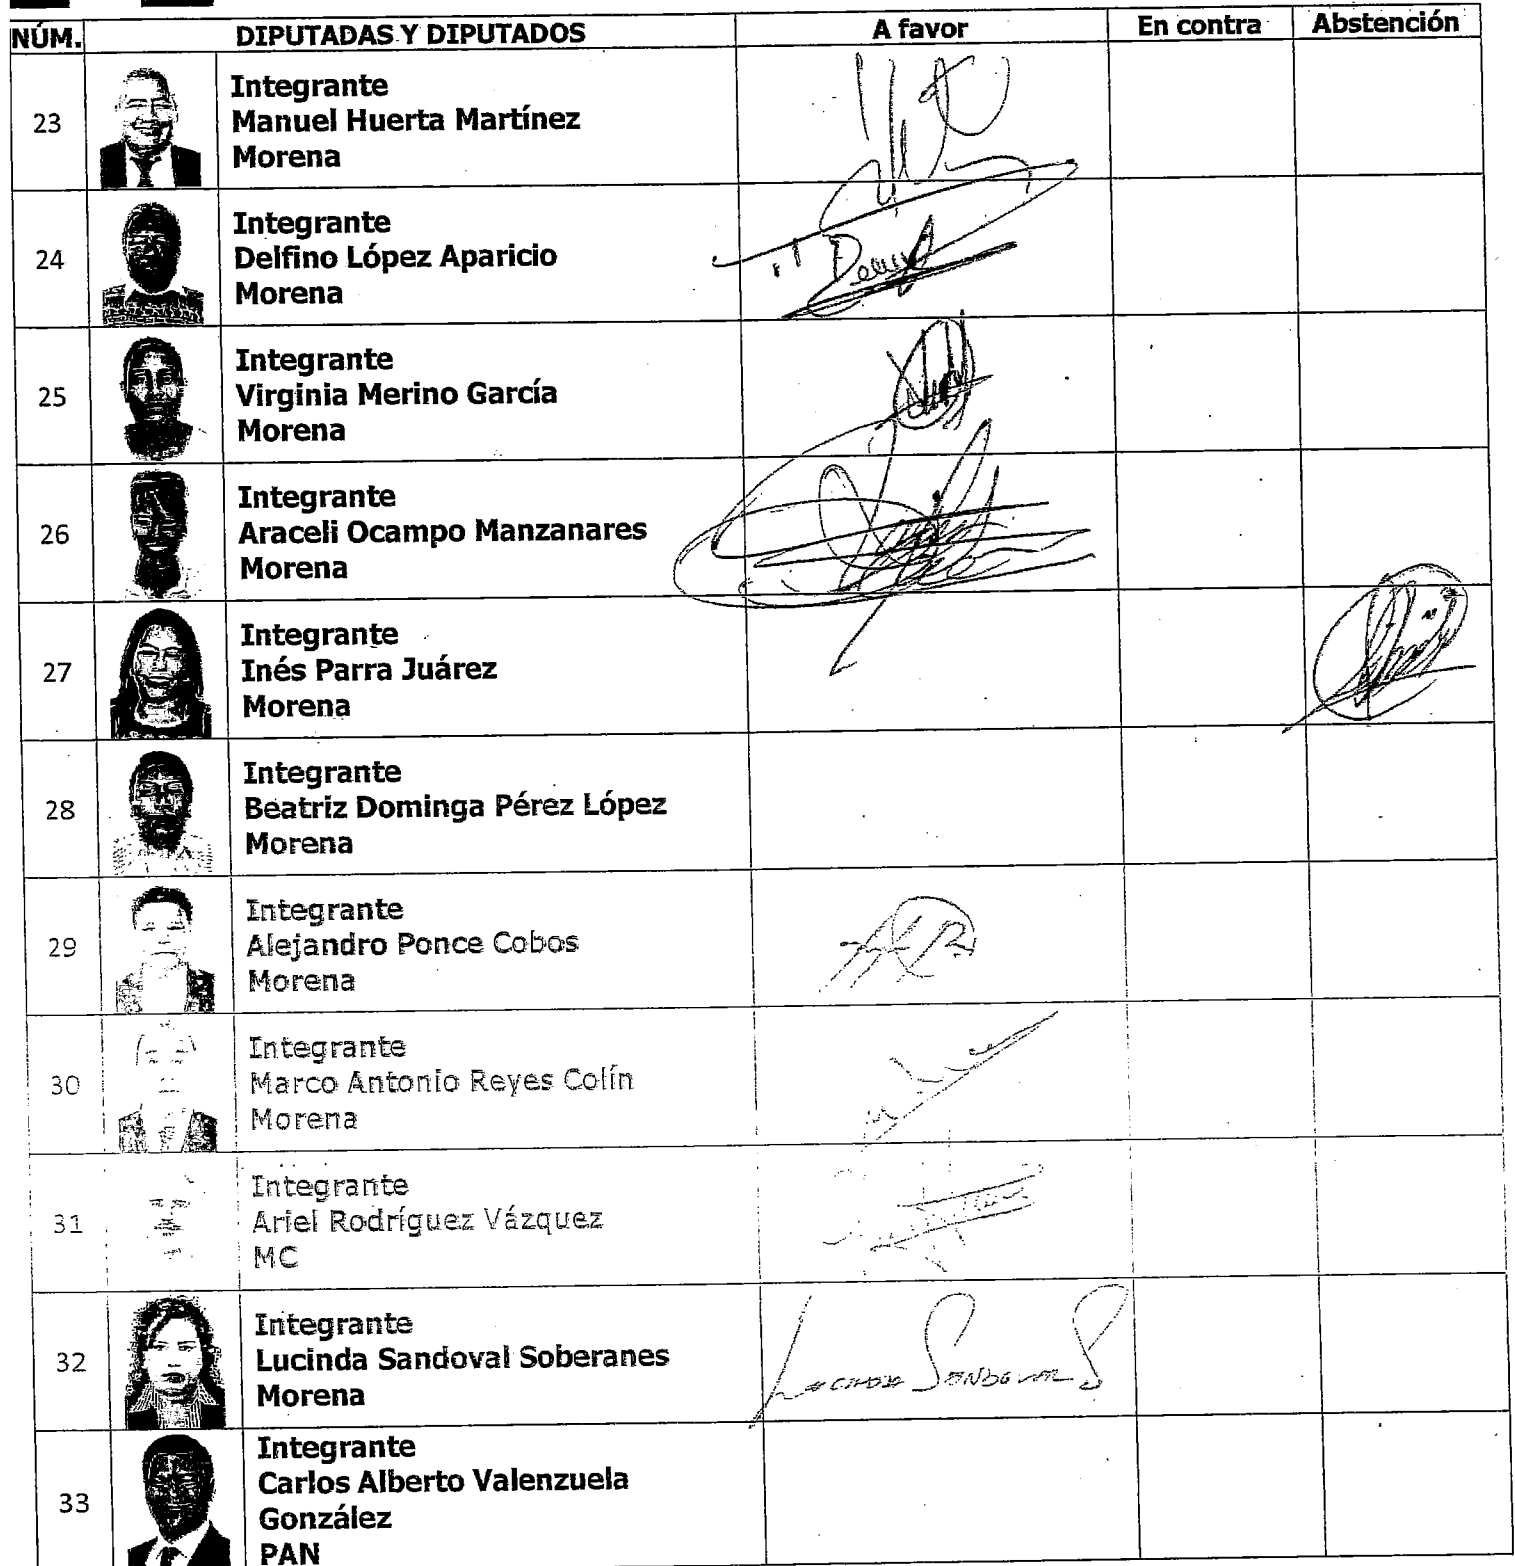 NÚM. DIPUTADAS Y DIPUTADOS A favor En contra Abstención
23
Integrante
Manuel Huerta Martínez
Morena
24
Integrante
Delfino López Aparicio
Morena
25
Integrante
Virginia Merino García
Morena
26
Integrante
Araceli Ocampo Manzanares
Morena
27
Integrante
Inés Parra Juárez
Morena
28
Integrante
Beatriz Dominga Pérez López
Morena
29
Integrante
Alejandro Ponce Cobos
Morena
30
Integrante
Marco Antonio Reyes Colín
Morena
31
Integrante
Ariel Rodríguez Vázquez
MC
32
Integrante
Lucinda Sandoval Soberanes
Morena
Lucinda Sandoval S
33
Integrante
Carlos Alberto Valenzuela
González
PAN